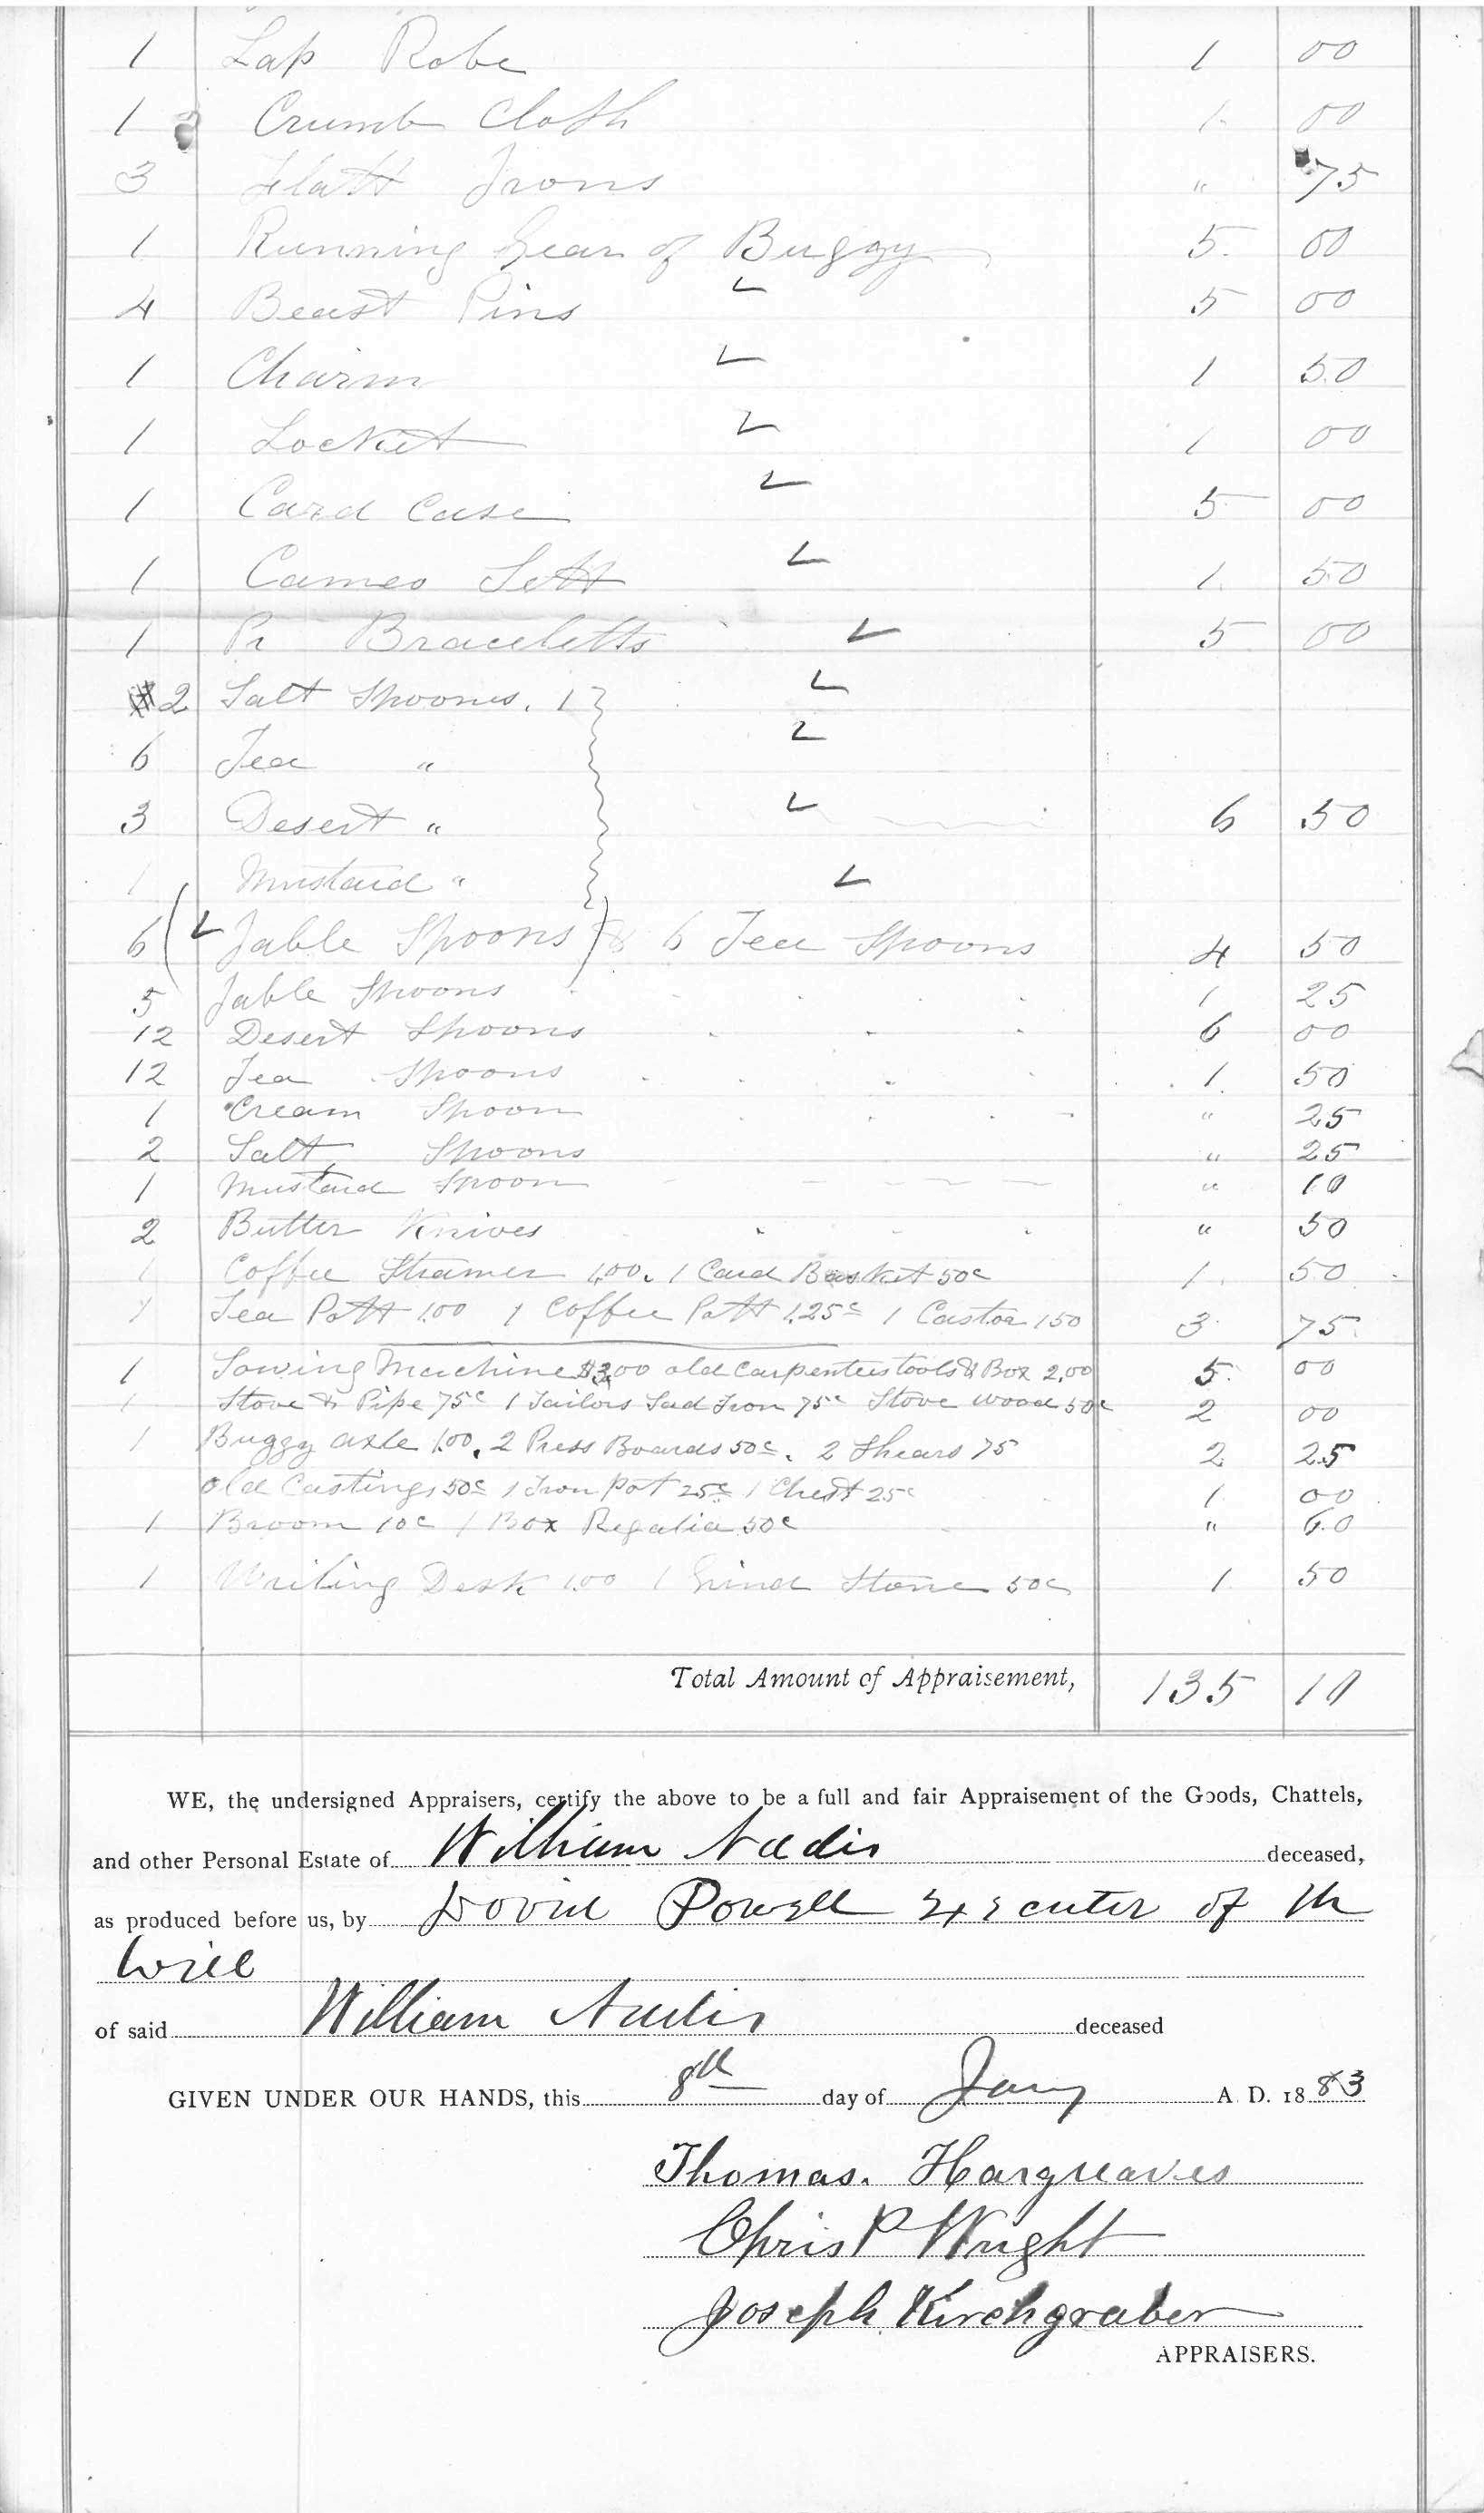 1 Lap Robe 1 00
1 Crumb Cloth 1 00
3 Flatt Irons " 75
1 Running Gear of Buggy 5 00
4 Beast Pins 5 00
1 Charm 1 50
1 Locket 1 00
1 Card Case 5 00
1 Cameo Sett 1 50
1 Pr Braceletts 5 00
2 Salt Spoons. 1
6 Tea "
3 Desert " 6 50
1 Mustard "
6 (Table Spoons) & 6 Tea Spoons 4 50
5 Table Spoons 1 25
12 Desert Spoons 6 00
12 Tea Spoons 1 50
1 Cream Spoon " 25
2 Salt Spoons " 25
1 Mustard Spoon " 10
2 Butter Knives " 50
1 Coffee Steamer 1,00. 1 Card Basket 50c 1 50
1 Tea Pott 1.00 1 Coffee Pott 1.25c 1 Castor 150 3 75
1 Sowing Machine $3,00 old carpenters tools & Box 2,00 5 00
1 Stove & Pipe 75c 1 Tailors Sad Iron 75c Stove wood 50c 2 00
1 Buggy axle 1.00. 2 Press Boards 50c. 2 Shears 75 2 25
old Castings 50c 1 Iron Pot 25c 1 Chest 25c 1 00
1 Broom 10c 1 Box Regalia 50c " 60
1 Writing Desk 1.00 1 Grind Stone 50c 1 50
Total Amount of Appraisement, 135 10
WE, the undersigned Appraisers, certify the above to be a full and fair Appraisement of the Goods, Chattels,
and other Personal Estate of William Nadis deceased,
as produced before us, by David Powell Executer of th
Will
of said William Nadis deceased
GIVEN UNDER OUR HANDS, this 8th day of Jany A. D. 18 83
Thomas. Hargreaves
Chris P Wright
Joseph Kirchgraber
APPRAISERS.